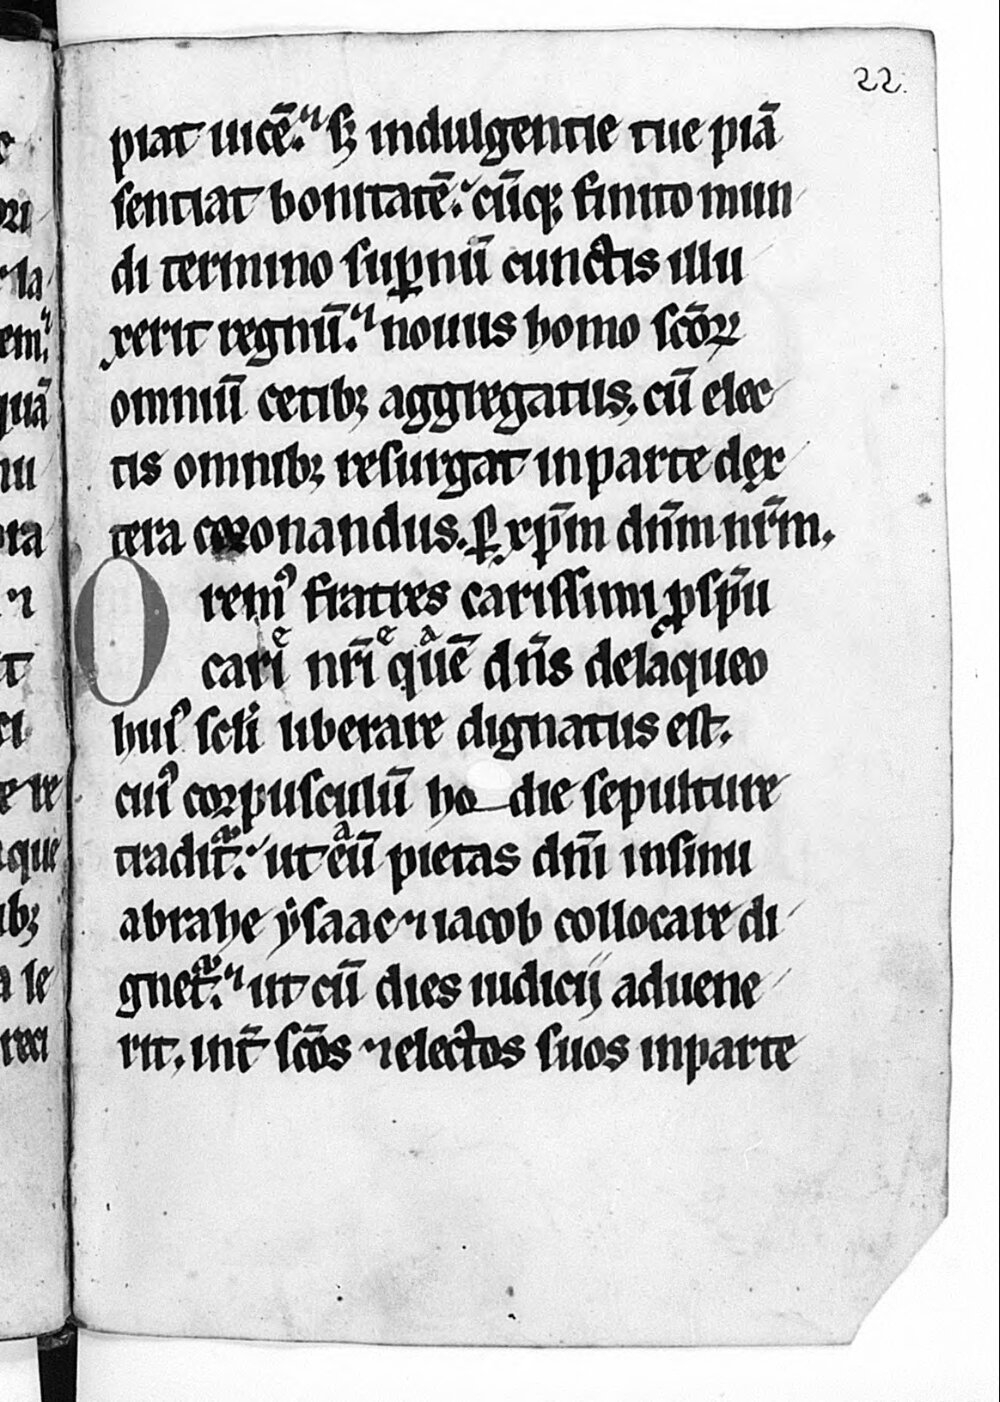 22.
piat uicē. sꝫ indulgentie tue piā
sentiat bonitatē. cūqꝫ finito mun
di termino suꝑnū cunctis illu
xerit regnū. nouus homo scōꝝ
omniū cetibꝫ aggregatus. cū elec
tis omnibꝫ resurgat inparte dex
tera coronandus. ꝑ xp̄m dn̄m nr̄m.
Oremꝰ fratres carissimi ꝓ sp̄u
cari nr̄i quē dn̄s delaqueo
huiꝰ scl̄i liberare dignatus est.
cuiꝰ corpusculū ho die sepulture
tradit᷑. ut eū pietas dn̄i insinu
abrahe ẏsaac ⁊ iacob collocare di
gnet᷑. ut cū dies iudicij aduene
rit. int̄ scōs ⁊ electos suos inparte